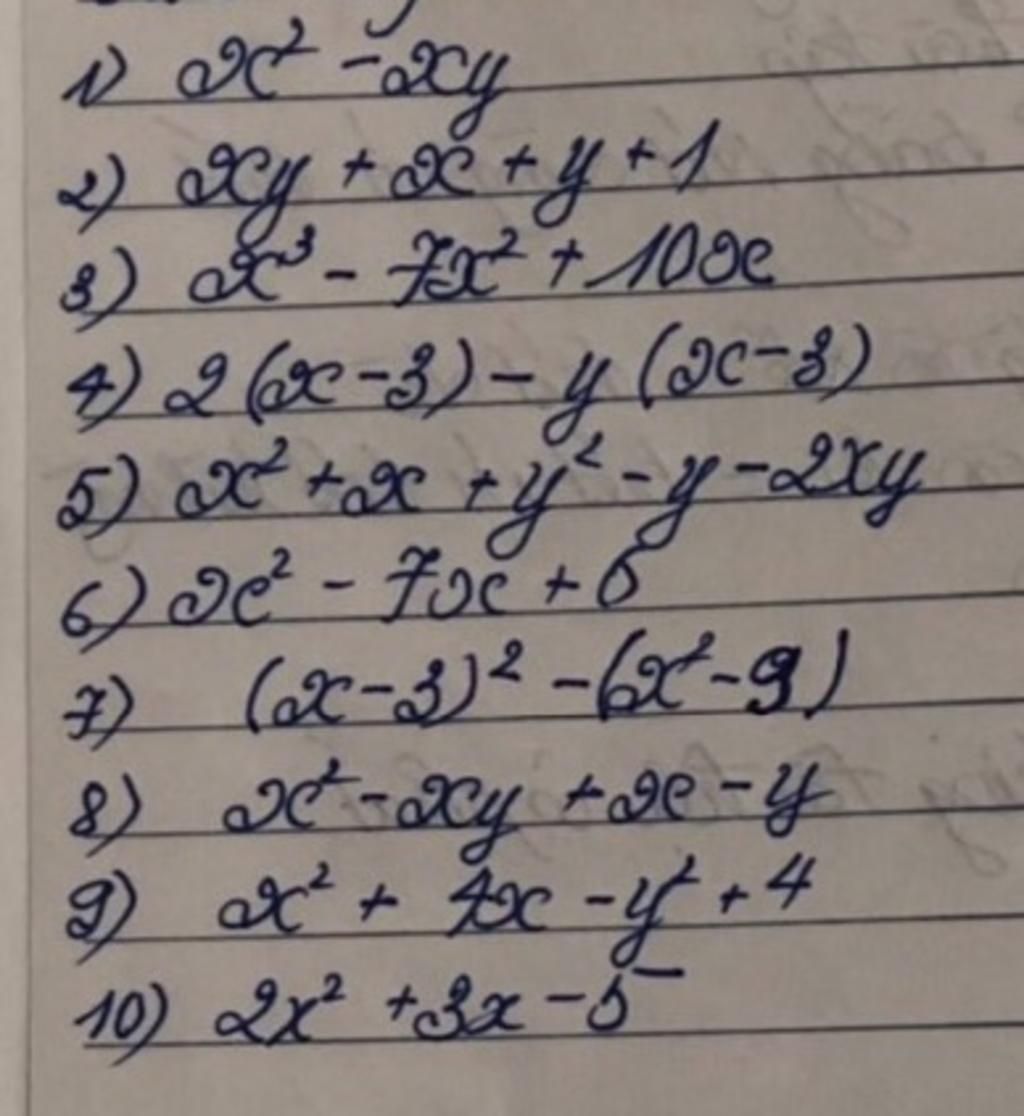 1) x² - xy
2) xy + x + y + 1
3) x³ - 7x² + 10x
4) 2(x-3) - y(x-3)
5) x² + x + y² - y - 2xy
6) x² - 7x + 6
7) (x-3)² - (x²-9)
8) x² - xy + x - y
9) x² + 4x - y² + 4
10) 2x² + 3x - 5